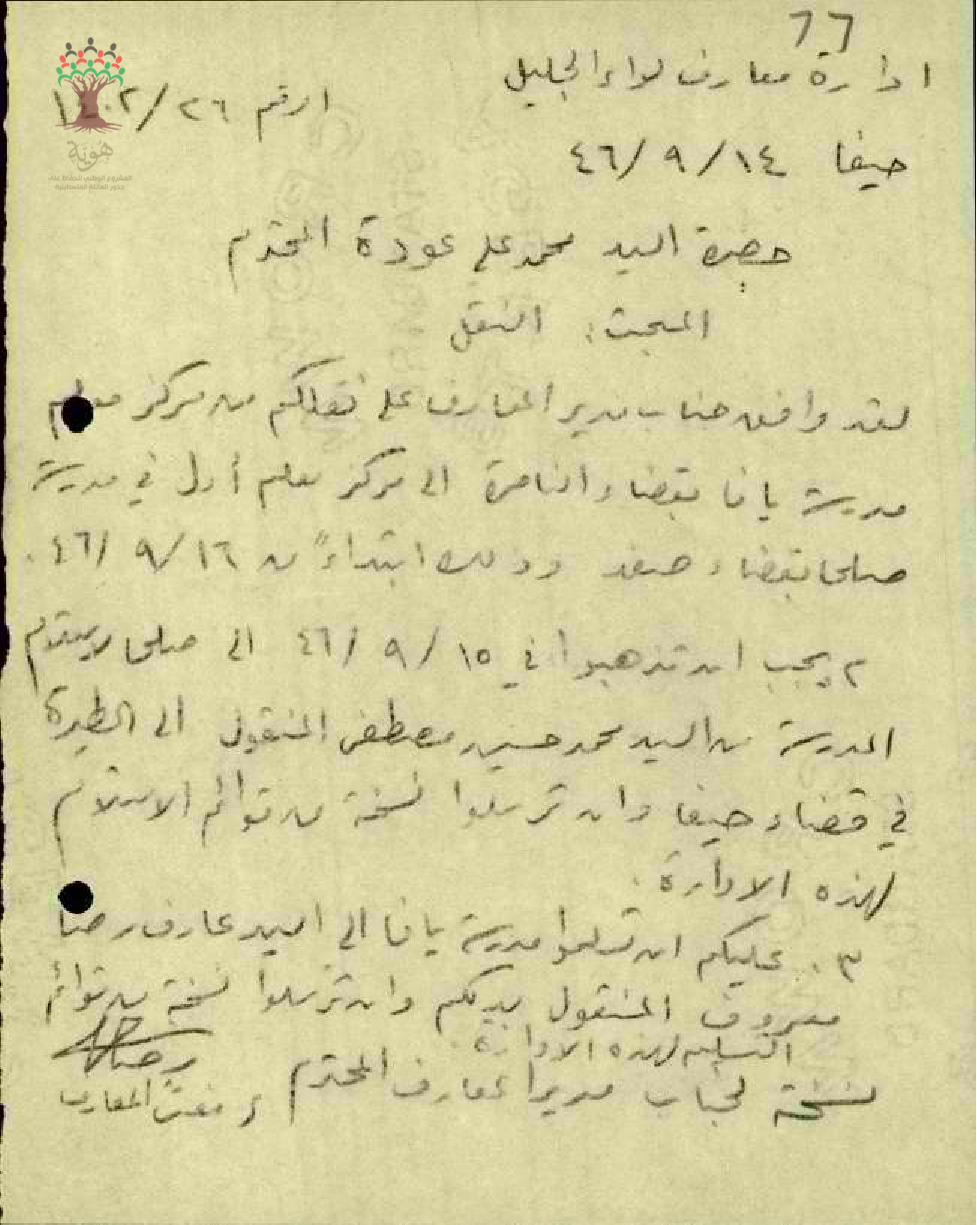 ٦٦
ادارة معارف لواء الجليل
الرقم ٢٦/١٤٠٢
حيفا ٤٦/٩/١٤
هوية
المشروع الوطني للحفاظ على
جذور العائلة الفلسطينية
حضرة السيد محمد علي عودة المحترم
المبحث: النقل
لقد وافق جناب مدير المعارف على نقلكم من مركز معلم
مدرسة يافا بقضاء الناصرة الى مركز معلم أول في مدرسة
صلحا بقضاء صفد وذلك ابتداءً من ٤٦/٩/١٦.
٢. يجب ان تذهبوا في ٤٦/٩/١٥ الى صلحا لاستلام
المدرسة من السيد محمد حسين مصطفى المنقول الى الطيرة
في قضاء حيفا وان ترسلوا نسخة من قوائم الاستلام
لهذه الادارة.
٣. عليكم ان تسلموا مدرسة يافا الى السيد عارف رضا
معروف المنقول بدلكم وان ترسلوا نسخة من قوائم
التسليم لهذه الادارة.
نسخة لجناب مدير المعارف المحترم
رضا
مفتش المعارف